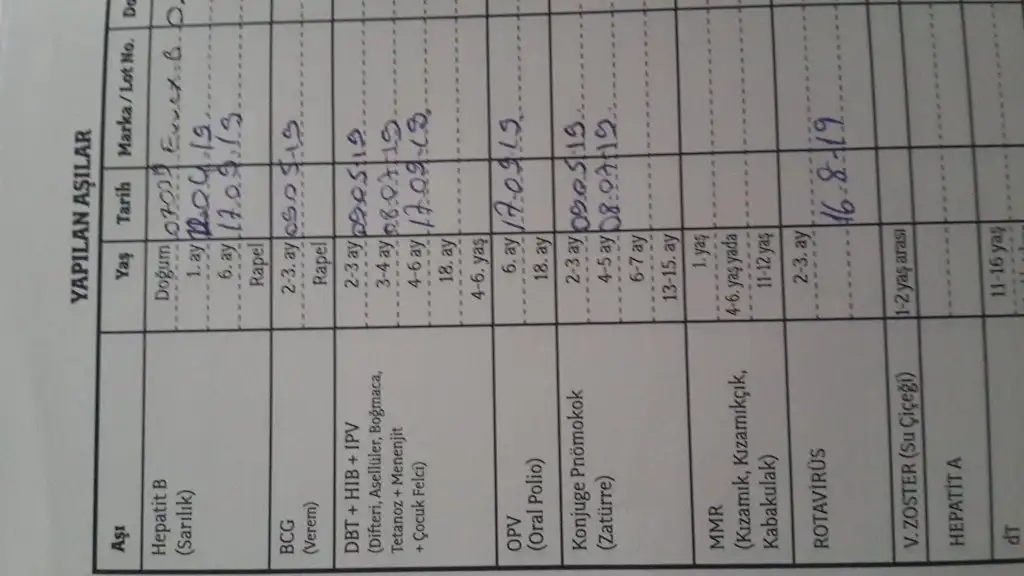 YAPILAN AŞILAR
Aşı Yaş Tarih Marka / Lot No.
Hepatit B
(Sarılık)
Doğum Euvax B
1. ay
6. ay 17.09.19
Rapel
BCG
(Verem)
2-3. ay 09.05.19
Rapel
DBT + HIB + IPV
(Difteri, Asellüler, Boğmaca,
Tetanoz + Menenjit
+ Çocuk Felci)
2-3 ay 09.05.19
3-4 ay 08.07.19
4-6 ay 17.09.19
18. ay
4-6. yaş
OPV
(Oral Polio)
6. ay 17.09.19
18. ay
Konjuge Pnömokok
(Zatürre)
2-3 ay 09.05.19
4-5 ay 08.07.19
6-7 ay
13-15. ay
MMR
(Kızamık, Kızamıkçık,
Kabakulak)
1. yaş
4-6. yaş yada
11-12 yaş
ROTAVİRÜS
2-3. ay
16.8.19
V.ZOSTER (Su Çiçeği) 1-2 yaş arası
HEPATİT A
dT 11-16 yaş